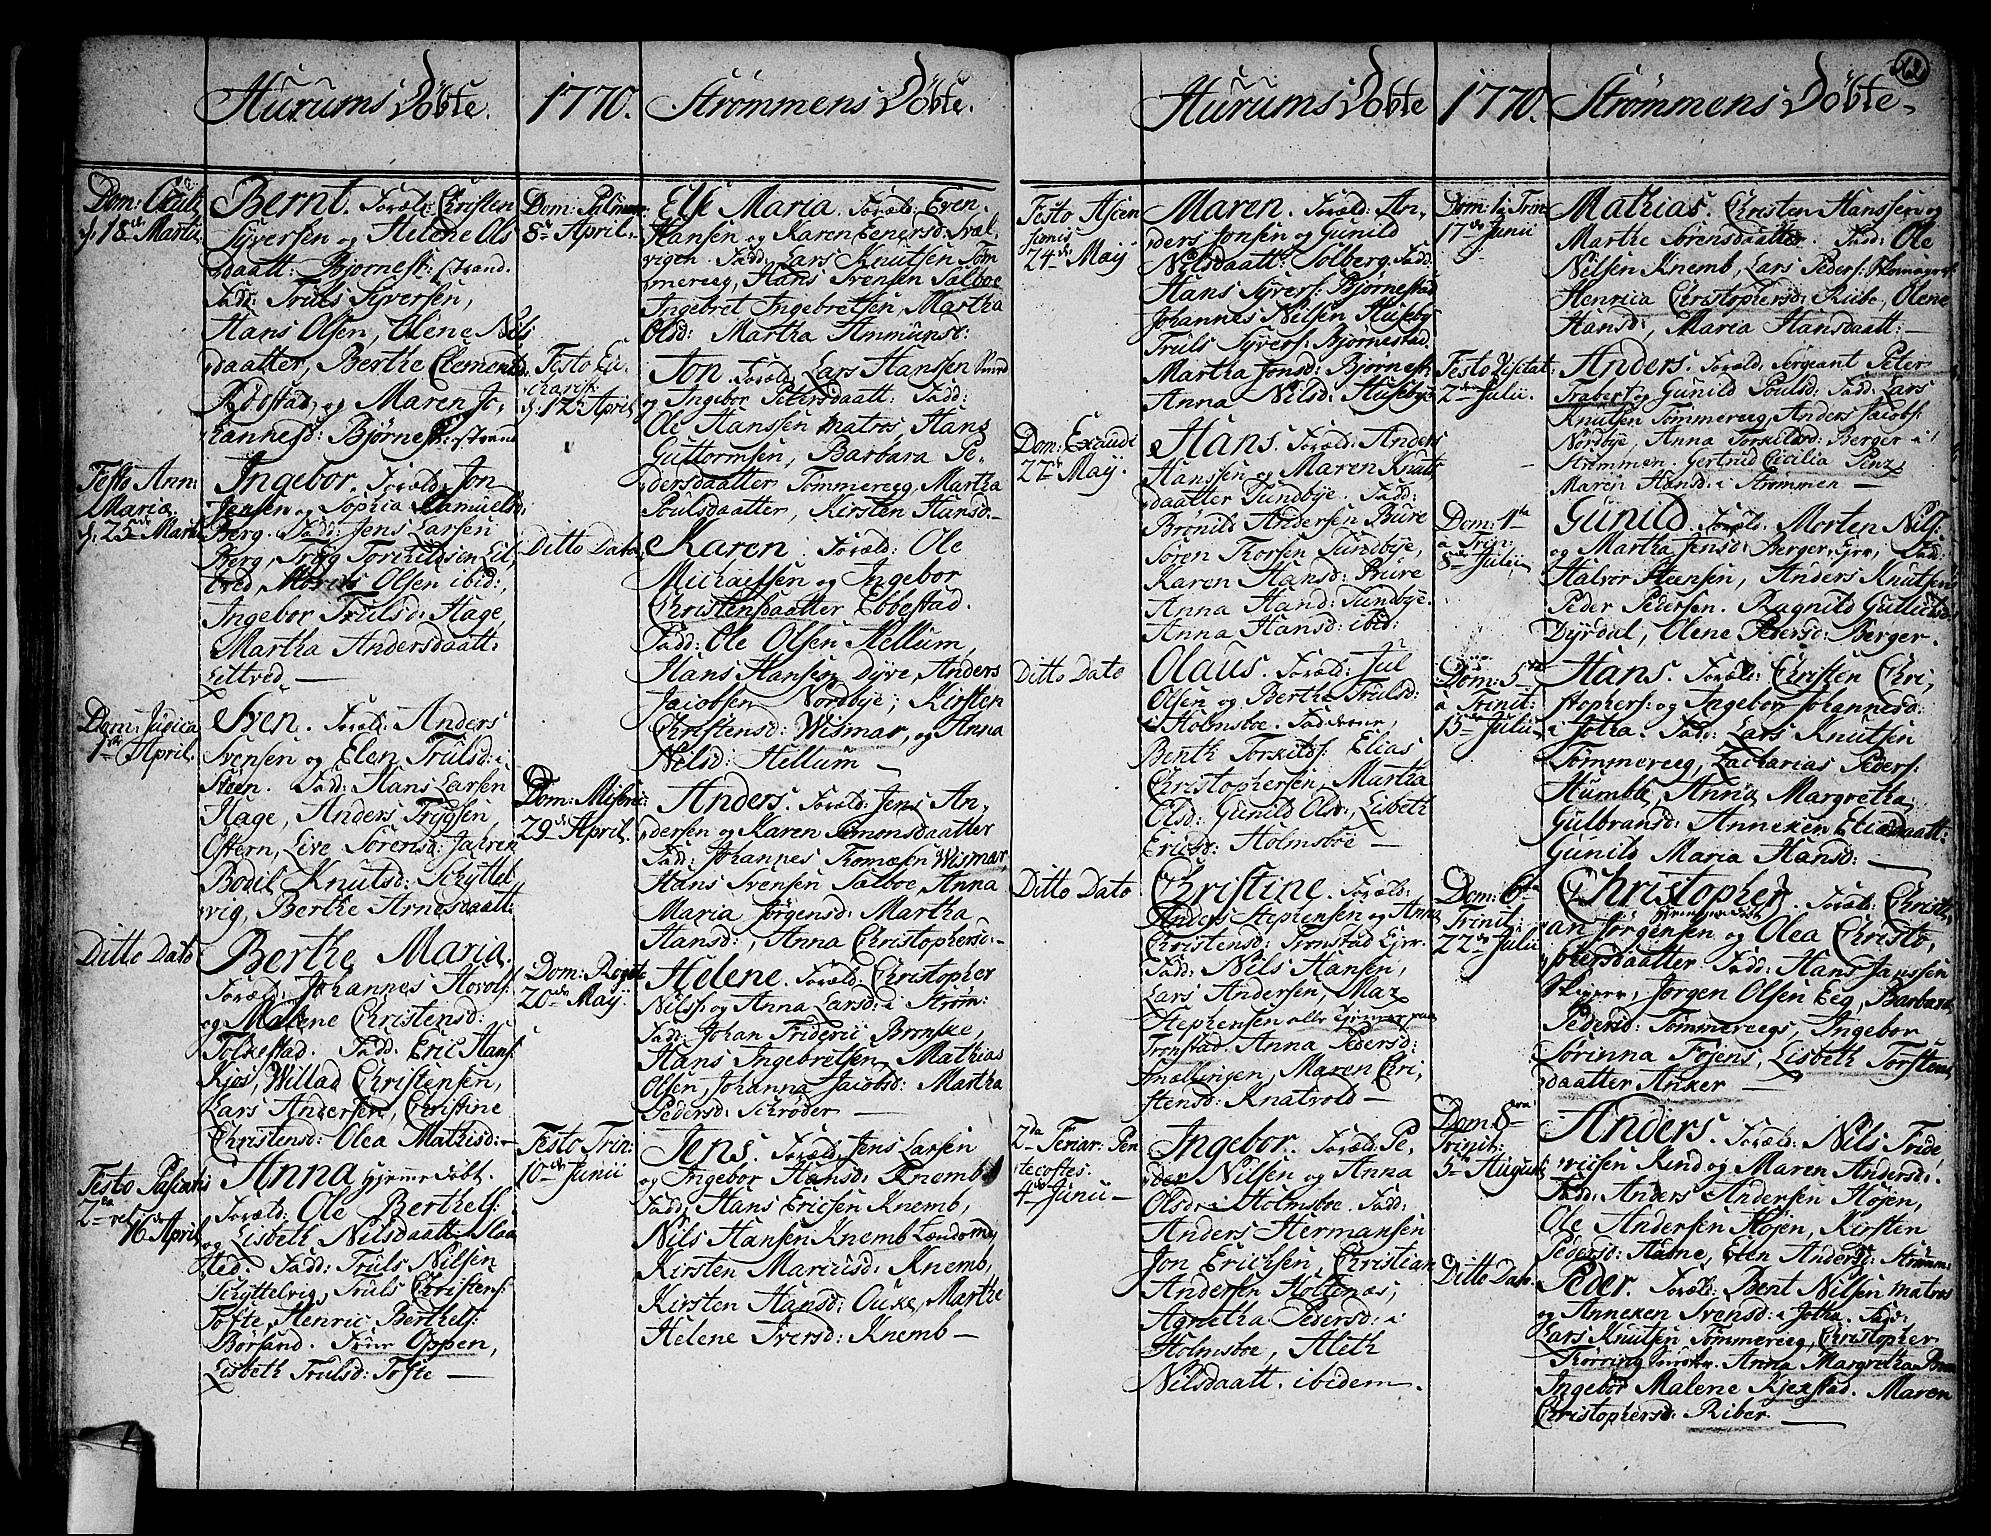 Hurums Döbte.
Dom: Oculi
d. 18de Martii
Bernt. Foræld: Christen
Syversen og Helene Ols
daatt: Bjørnest: strand.
Fadd: Truls Syversen,
Hans Olsen, Olene Nils
daatter, Berthe Clements
Rödstad, og Maren Jo-
hannesd: Bjørnest: strand
Festo Ann:
Maria
d. 25de Martii
Ingebor. Foræld: Jon
Jensen og Sophia Samuelsd:
Berg. Fadd: Jens Larsen
Berg, Tryg Torkildsen
Olsen ibid:
Ingebor Trulsd: Hage,
Martha Andersdaatt:
Littved —
Dom: Judica
1ste April.
Sven. Foræld: Anders
Svensen og Elen Trulsd: i
Steen. Fadd: Hans Larsen
Hage, Anders Trygsen,
Østern, Live Sørensd:
Bodil Knutsd: Schyttel
vig, Berthe Arnesdaatt:
Ditto Dato
Berthe Maria.
Foræld: Johannes
og Malene Christensd:
Tofkestad. Fadd: Eric Hans:
Kjos, Willad Christensen,
Lars Andersen, Christine
Christensd: Olea Mathisd: —
Festo Paschatos
2da
16 April
Anna hjemmedøbt.
Foræld: Ole Berthels:
og Lisbeth Nilsdaatt:
Fadd: Truls Nilsen
Schyttelvig, Truls Christens:
Tofte, Henric Berthels:
Børsand. Oppen,
Lisbeth Trulsd: Tofte —
1770. Strømmens Döbte.
Dom: Palmar:
8de April.
Else Maria. Foræld: Even
Hansen og Karen Svæl,
vigen. Fadd: Lars Knutsen Töm
mereeg, Hans Svensen Sælboe
Ingebret Ingebretsen, Martha
Olsd: Martha Ammunsd:
Festo Eu
charist:
d. 12te April
Jon. Foræld: Lars Hanssen
og Ingebor Petersdaatt: Fadd:
Ole Hanssen matros Hans
Guttormsen, Barbara Pe-
dersdaatter Tømmereeg, Martha
Poulsdaatter, Kirsten Hansd: —
Ditto Dato
Karen. Foræld: Ole
Michaelsen og Ingebor
Christensdaatter Ebbestad.
Fadd: Ole Olsen Hellum,
Hans Hansen Dyre, Anders
Jacobsen Nordbye; Kirsten
Christensd: Wismar, og Anna
Nilsd: Hellum —
Dom: Miseric:
29de April.
Anders. Foræld: Jens An-
dersen og Karen Simonsdaatter
Fadd: Johannes Thomæsen Wismar,
Hans Svensen Sælboe, Anna
Maria Jørgensd: Martha
Hansd:, Anna Christophersd: —
Dom: Rogate
20de Maij.
Helene. Foræld: Christopher
Nilss: og Anna Larsd: i Strøm:
Fadd: Johan Frideric Brønske,
Hans Ingebretsen, Mathias
Olsen, Johanna Jacobsd: Martha
Pedersd: Schrøder —
Festo Trin:
10de Junii
Jens. Foræld: Jens Larsen
og Ingebor Hansd: Knemb
Fadd, Hans Ericsen Knemb,
Nils Hansen Knemb
Kirsten Mariusd: Knemb,
Kirsten Hansd: Marthe
Helene Iversd: Knemb —
Hurums Döbte
Festo Ascen
sionis
24de Maij
Maren. Foræld: An-
ders Jonsen og Gunild
Nilsdaatt: Solberg. Fadd:
Hans Syvers: Bjørnestad
Johannes Nilsen Huseby
Truls Syvers: Bjørnestad
Martha Jonsd: Bjørnest:
Anna Nilsd: Husebye
Dom: Exaudi
27de Maij.
Hans. Foræld: Anders
Hanssen og Maren Knuts
daatter Sundbye. Fadd:
Brønild Andersen Bure
Soren Thorsen Sundbye,
Karen Hansd: Bure
Anna Hansd: Sundbye.
Anna Hansd: ibid:
Ditto Dato
Olaus. Foræld: Jul
Olsen og Berthe Trulsd:
i Holmsboe. Fadderne,
Benth Torkilds: Elias
Christophersen, Martha
Olsd: Gunild Olsd:, Lisbeth
Ericsd: Holmsboe —
Ditto Dato
Christine. Foræld:
Anders Stephensen og Anna
Christensd: Tronstad Ejer.
Fadd: Nils Hansen,
Lars Andersen, Max
Stephensen alle
Tronstad. Anna Pedersd:
Smællingen, Maren Chri,
stensd: Knatvold —
2da Feriar: Pen
tecostes.
4de Junii —
Ingebor. Foræld: Pe,
der Nilsen og Anna
Olsd: i Holmsboe. Fadd:
Anders Hermansen
Jon Erichsen, Christian
Andersen Holtenæs,
Agnetha Pedersd: i
Holmsboe, Aleth
Nilsdaatt. ibidem.
1770. Strømmens Döbte.
62
Dom: 1. Trin
17de Junii
Mathias. Christen Hanssen og
Marthe Sørensdaatter. Fadd: Ole
Nilsen Knemb, Lars Peders:
Henrica Christophersd: Riibe, Olene
Hansd:, Maria Hansdaatt: —
Festo Visitat.
2den Julii.
Anders. Foræld: Sergeant Peter
Trabert og Gunild Poulsd: Fadd: Lars
Knutsen Tømmereeg, Anders Jacobs:
Nordbye, Anna Torkilsd: Berger i
Strømmen, Gertrud Cicilia Penz,
Maren Hansd: i Strømmen —
Dom: 4ta
a Trin:
8de Julii
Gunild. Foræld: Morten Nils:
og Martha Jensd: Berger, Fadd:
Halvor Steensen, Anders Knutsen
Peder Pedersen. Ragnild Gullichsd:
Dyrdal, Olene Pedersd: Berger.
Dom: 5ta
a Trinit:
15de Julii
Hans. Foræld: Christen Chri,
stophers: og Ingebor Johannesd:
i Jotha. Fadd: Lars Knutsen
Tømmereeg, Zacharias Peders:
Humble, Anna Margretha
Gulbransd: Anneken Eliedaatt:
Gunild Maria Hansd: —
Dom: 6ta
Trinit:
22de Julii
Christopher. Foræld: Christi,
hjemmedöbt
an Jørgensen og Olea Christo,
phersdaatter. Fadd: Hans Janssen
Skipper, Jørgen Olsen Eeg, Barbara
Pedersd: Tømmereegs, Ingebor
Sørinna Fojens, Lisbeth Torstens
daatter Anker —
Dom: 8va
Trinit:
5te August
Anders. Foræld: Nils Fride
ricsen Kind og Maren Andersd:
Fadd: Anders Andersen Højen,
Ole Andersen Højen, Kirsten
Pedersd: Havne, Elen Andersd: Strømm:
Ditto Dato.
Peder. Foræld: Bent Nilsen matros
og Anneken Svensd: i Jotha. Fadd:
Lars Knutsen Tømmereeg, Christopher
Thørring Anna Margretha
Ingebor Malene Kjexstad. Maren
Christophersd: Riber —